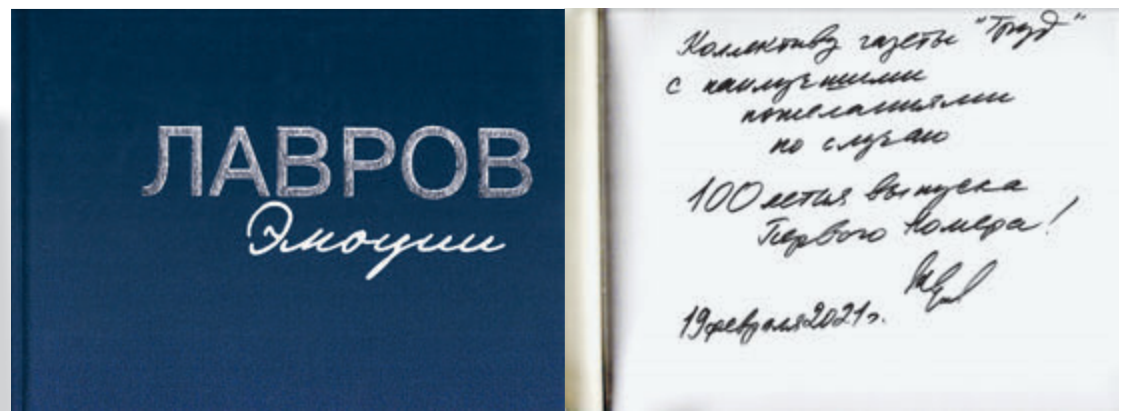 ЛАВРОВ
Эмоции
Коллективу газеты "Труд"
с наилучшими
пожеланиями
по случаю
100 летия выпуска
Первого Номера!
19 февраля 2021 г.